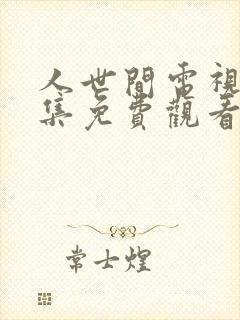 人世間電視
集免費觀看
常士煌